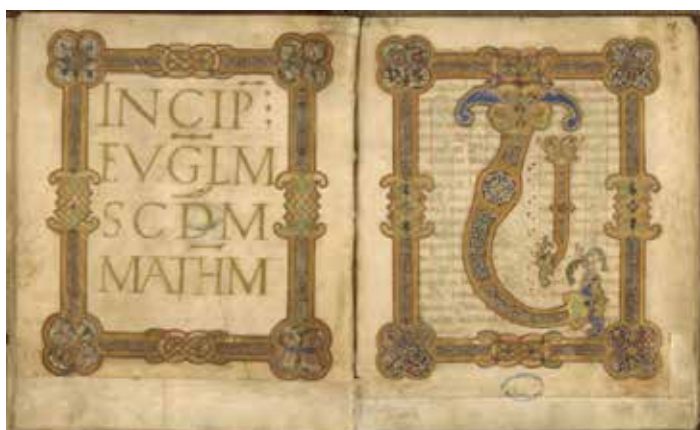 INCIP
EVGLM
SCDM
MATHM
LI